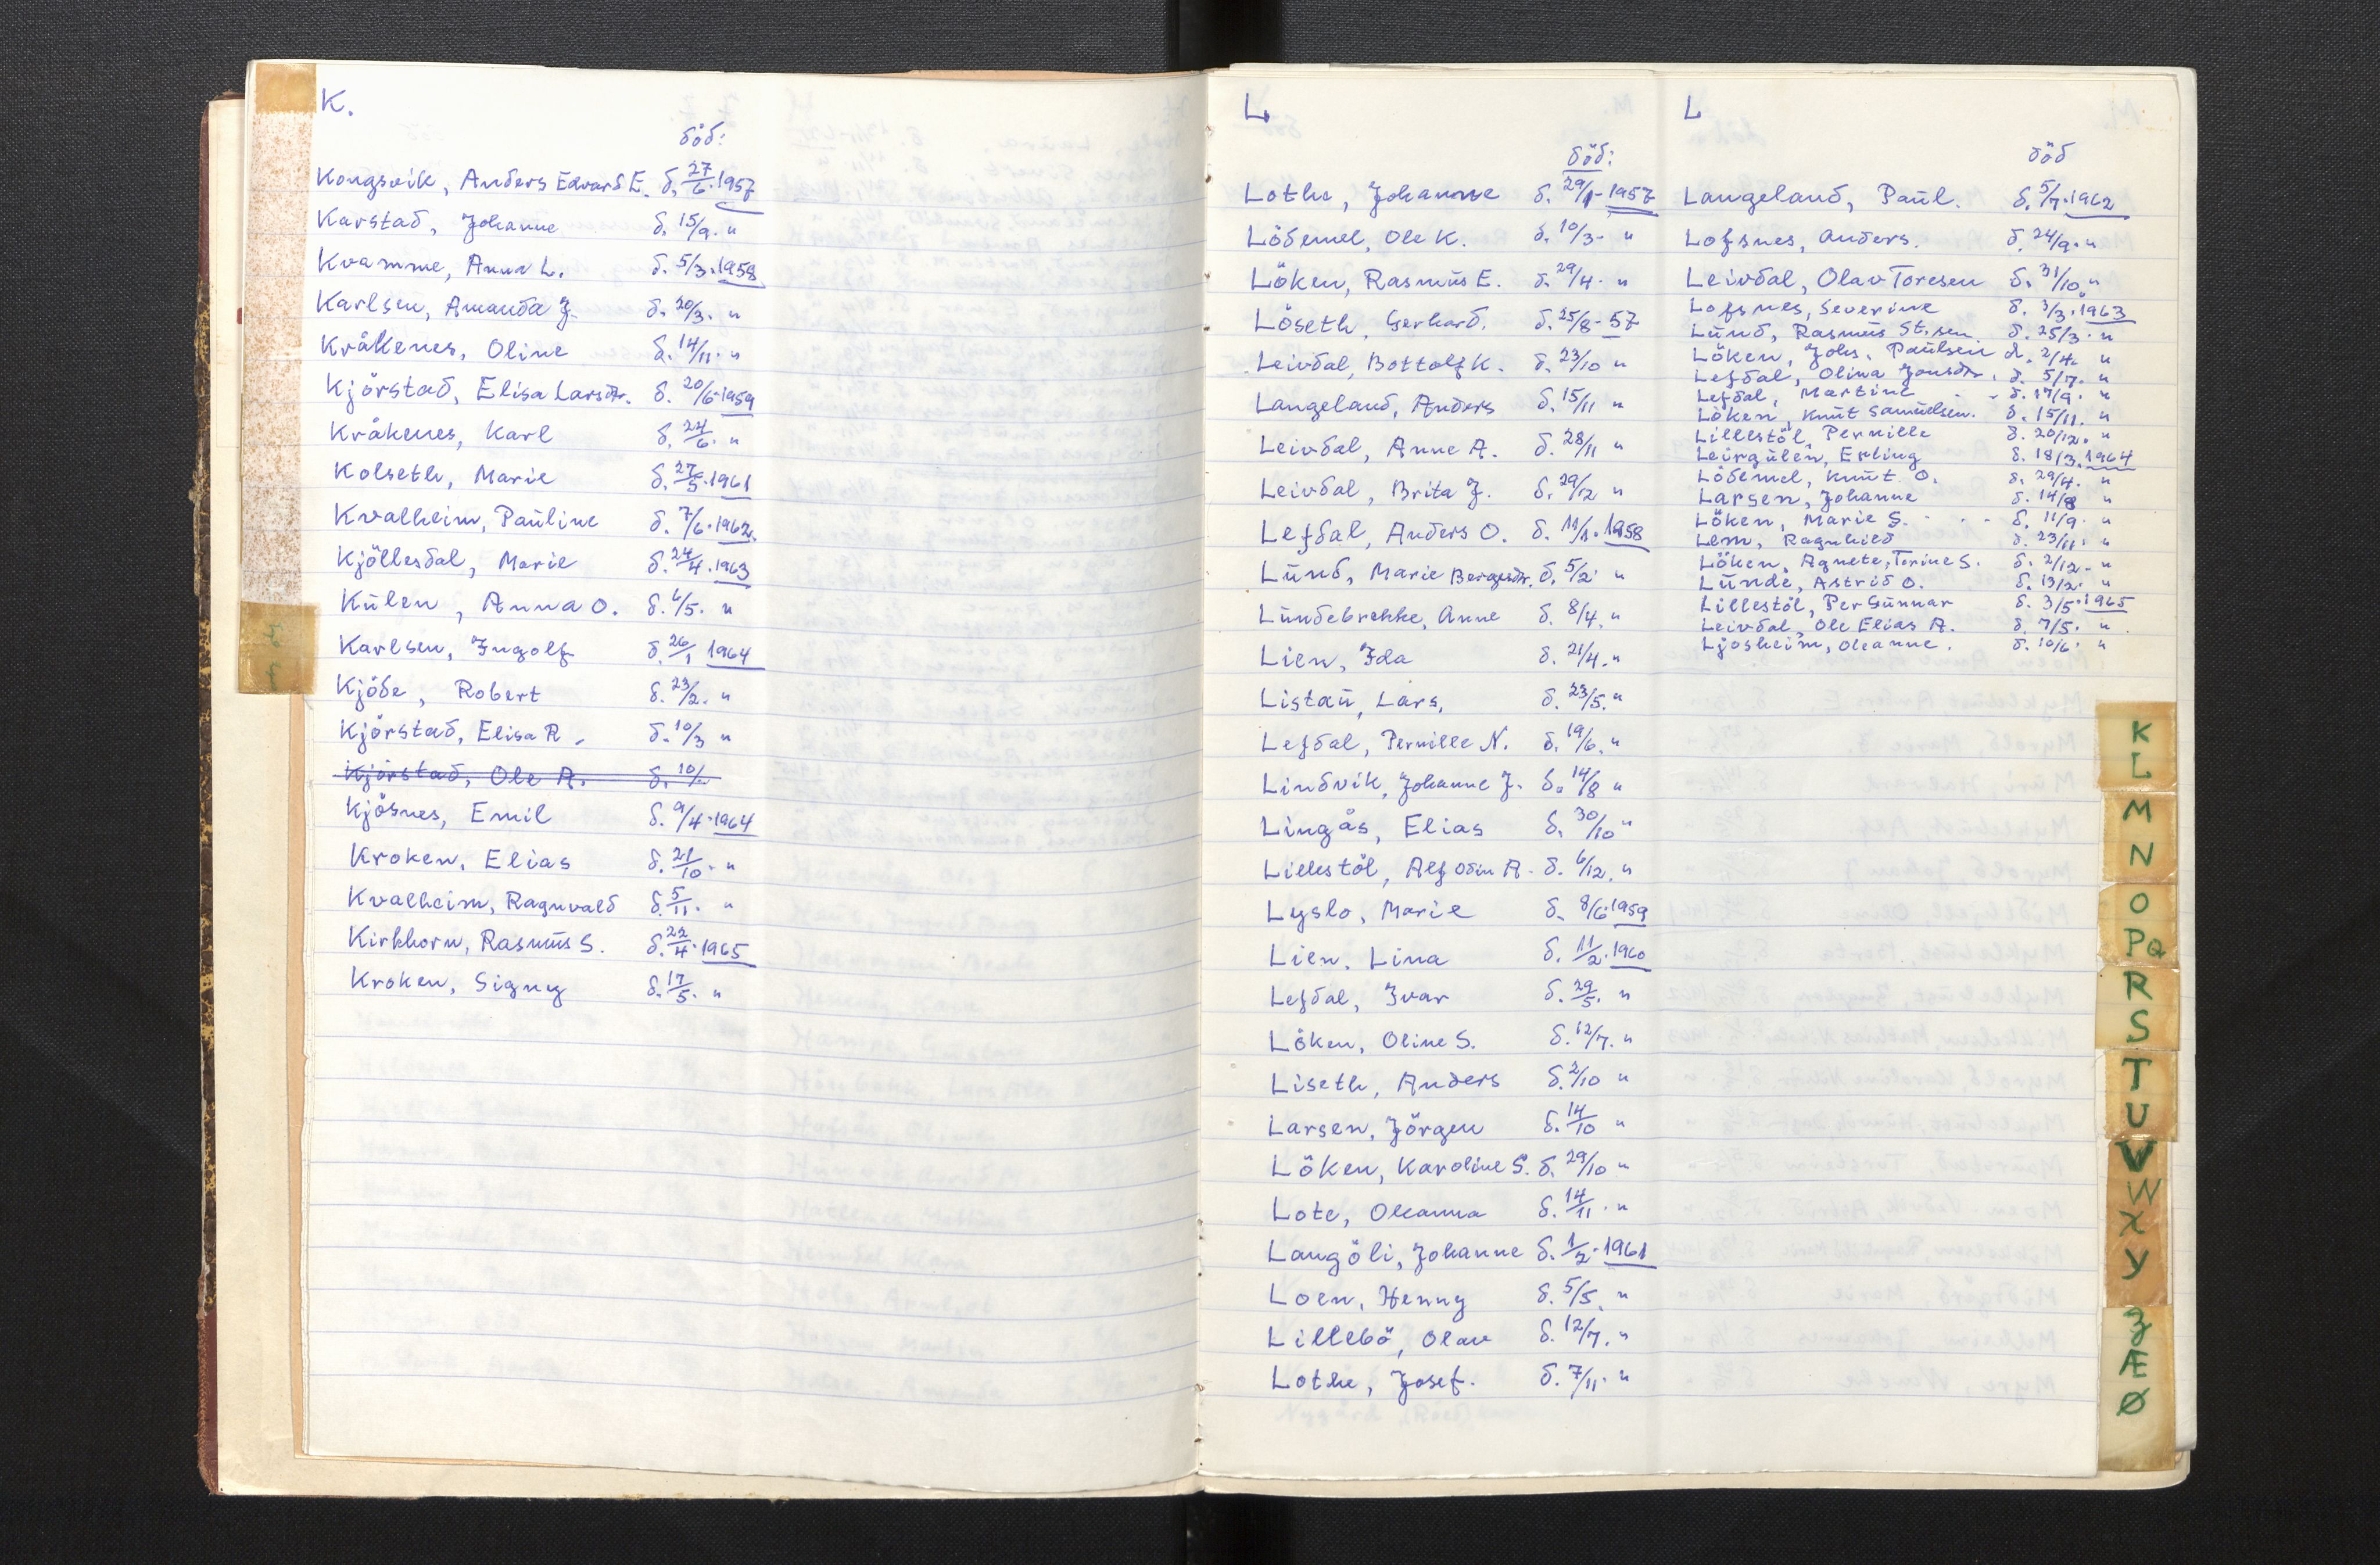 K.
død:
Kongsvik, Anders Edvard E. d. 27/6. 1957
Karstad, Johanne d. 15/9. "
Kvamme, Anna L. d. 5/3. 1958
Karlsen, Amanda J. d. 20/3. "
Kråkenes, Oline d. 14/11. "
Kjörstad, Elisa Larsdtr. d. 20/6. 1959
Kråkenes, Karl d. 24/6. "
Kolseth, Marie d. 27/5. 1961
Kvalheim, Pauline d. 7/6. 1962.
Kjöllesdal, Marie d. 24/4. 1963
Kulen, Anna O. d. 6/5. "
Karlsen, Ingolf d. 26/1 1964
Kjöde, Robert d. 23/2. "
Kjörstad, Elisa R. d. 10/3 "
Kjörstad, Ole A. d. 10/
Kjösnes, Emil d. 9/4. 1964
Kroken, Elias d. 21/10. "
Kvalheim, Ragnvald d. 5/11. "
Kirkhorn, Rasmus S. d. 22/4. 1965
Kroken, Signy d. 17/5. "
L.
död:
Lothe, Johanne d. 29/1- 1957
Lödemel, Ole K. d. 10/3- "
Löken, Rasmus E. d. 29/4. "
Löseth, Gerhard. d. 25/8- 57
Leivdal, Bottolf K. d. 23/10 "
Langeland, Anders d. 15/11 "
Leivdal, Anne A. d. 28/11 "
Leivdal, Brita J. d. 29/12 "
Lefdal, Anders O. d. 11/1. 1958
Lund, Marie Bergesdtr. d. 5/2. "
Lundebrekke, Anne d. 8/4. "
Lien, Ida d. 21/4. "
Listau, Lars, d. 23/5. "
Lefdal, Pernille N. d. 19/6. "
Lindvik, Johanne J. d. 14/8 "
Lingås, Elias d. 30/10 "
Lillestöl, Alf Odin A. d. 6/12. "
Lyslo, Marie d. 8/6. 1959
Lien, Lina d. 11/2. 1960
Lefdal, Ivar d. 29/5. "
Löken, Oline S. d. 12/7. "
Liseth, Anders d. 2/10 "
Larsen, Jörgen d. 14/10 "
Löken, Karoline S. d. 29/10 "
Lote, Oleanna d. 14/11. "
Langöli, Johanne d. 1/2. 1961
Loen, Henny d. 5/5. "
Lillebö, Olav d. 12/7. "
Lothe, Josef. d. 7/11. "
L
död
Langeland, Paul. d. 5/7. 1962
Lofsnes, Anders. d. 24/9. "
Leivdal, Olav Toresen d. 31/10. "
Lofsnes, Severine d. 3/3. 1963
Lund, Rasmus St.sen d. 25/3. "
Löken, Johs. Paulsen d. 2/4. "
Lefdal, Olina Jonsdtr. d. 5/7. "
Lefdal, Martine d. 17/9. "
Löken, Knut Samuelsen. d. 15/11. "
Lillestöl, Pernille d. 20/12. "
Leirgulen, Erling d. 18/3. 1964
Lödemel, Knut O. d. 29/4. "
Larsen, Johanne d. 14/8 "
Löken, Marie S. d. 11/9. "
Lem, Ragnhild d. 23/11. "
Löken, Agnete, Torine S. d. 2/12. "
Lunde, Astrid O. d. 13/2. "
Lillestöl, Per Gunnar d. 3/5. 1965
Leivdal, Ole Elias A. d. 7/5. "
Ljosheim, Oleanne. d. 10/6. "
K
L
M
N
O
PQ
R
S
T
U
V
W
X
Y
Z
Æ
Ø